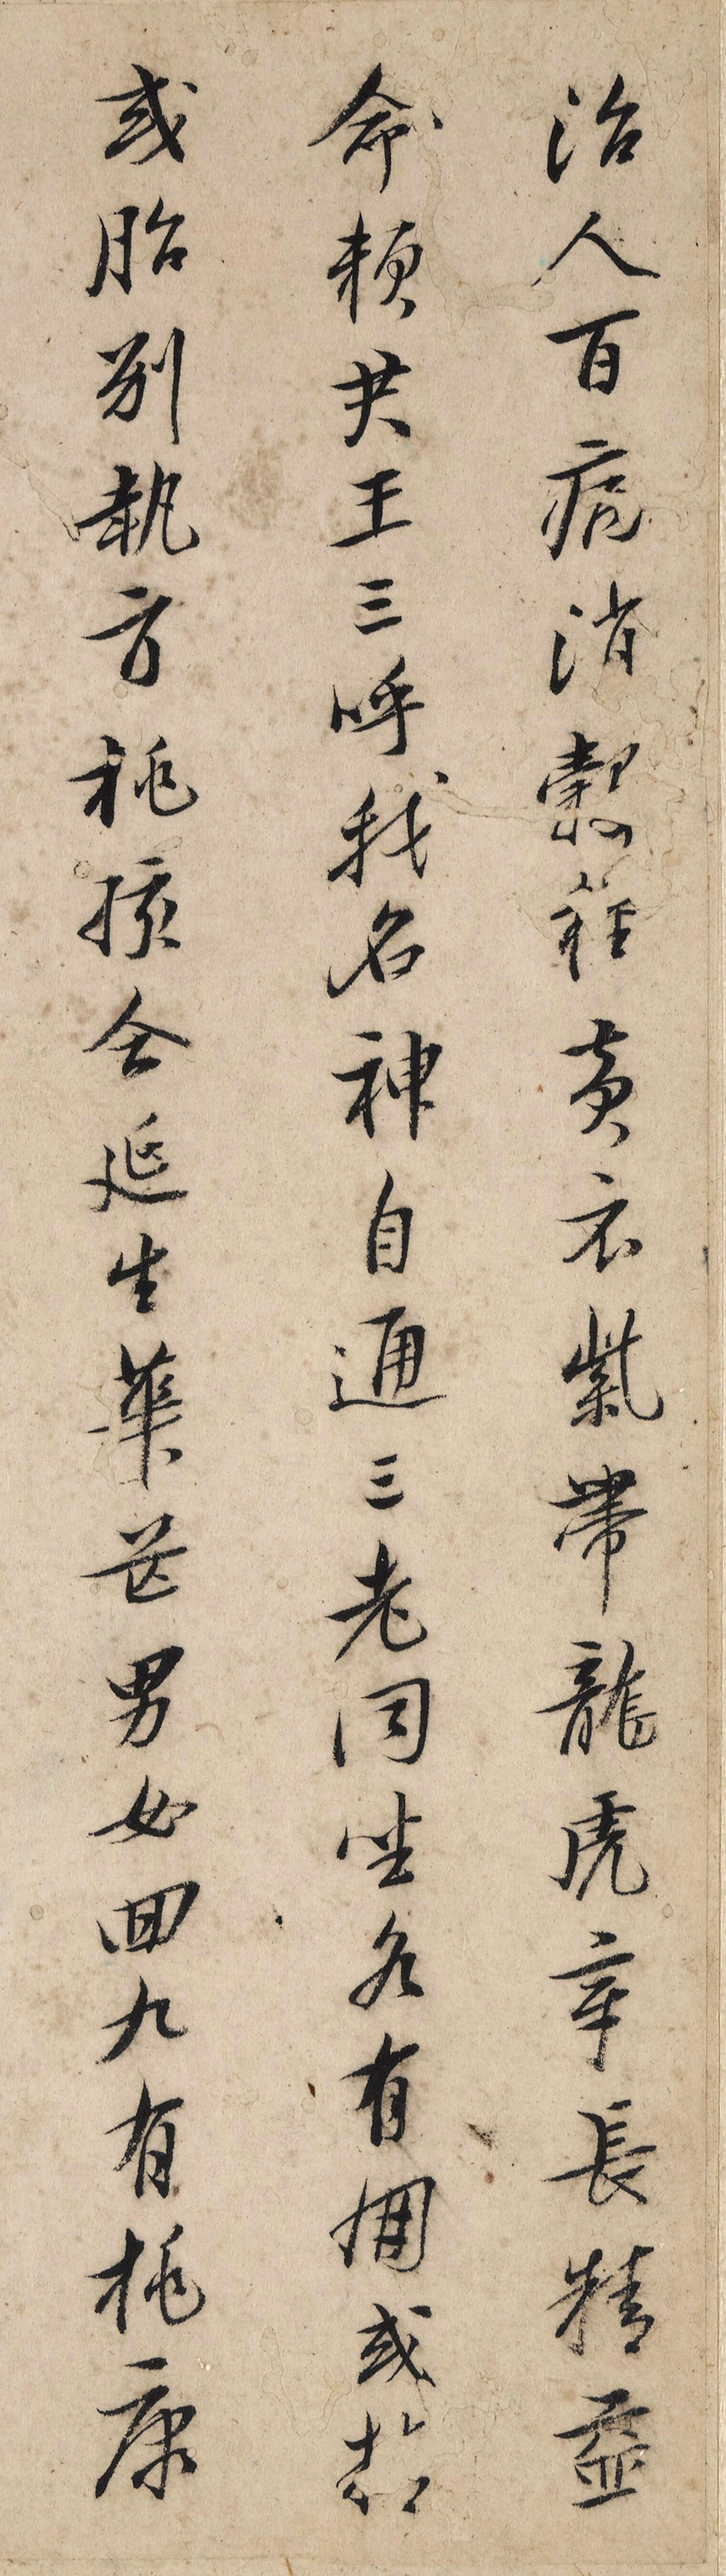 治人百病消穀糧黃衣紫帶龍虎章長精益
命賴共王三呼我名神自通三老同坐各有朋或精
或胎別執方桃孩合延生華芒男女回九有桃康